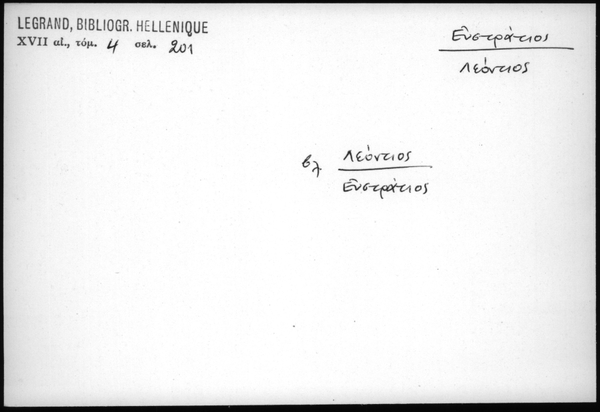 LEGRAND, BIBLIOGR. HELLENIQUE
XVII αἰ., τόμ. 4 σελ. 201
Εὐστράτιος
Λεόντιος
βλ. Λεόντιος
Εὐστράτιος